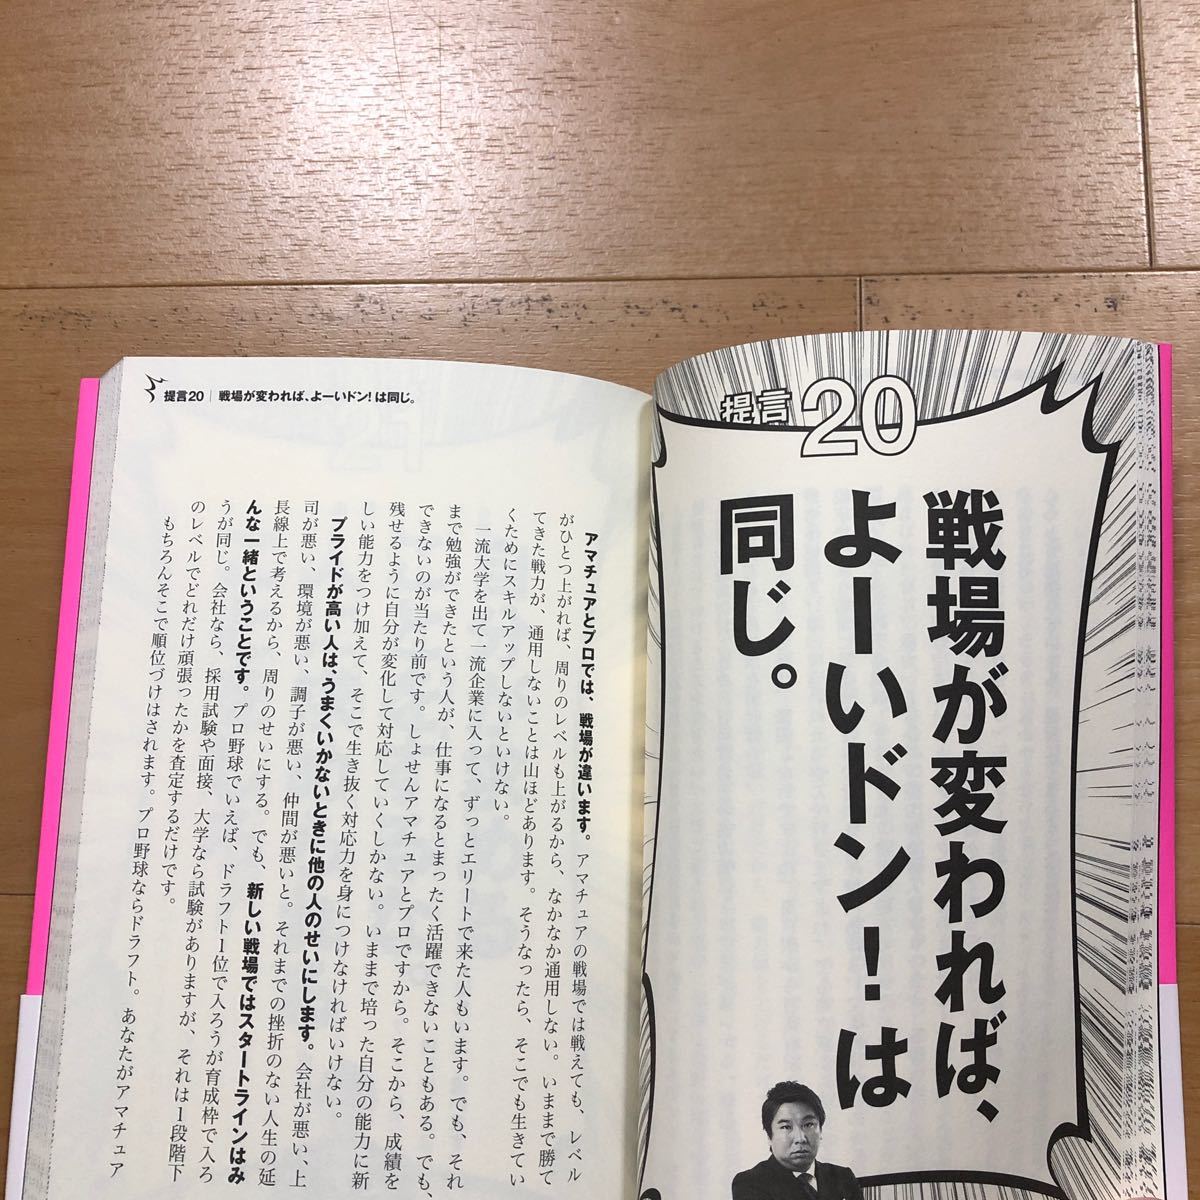 提言20
戦場が変われば、
よーいドン!は
同じ。
提言20｜戦場が変われば、よーいドン!は同じ。
アマチュアとプロでは、戦場が違います。アマチュアの戦場では戦えても、レベル
がひとつ上がれば、周りのレベルも上がるから、なかなか通用しない。いままで勝て
てきた戦力が、通用しないことは山ほどあります。そうなったら、そこでも生きてい
くためにスキルアップしないといけない。
一流大学を出て一流企業に入って、ずっとエリートで来た人もいます。でも、それ
まで勉強ができたという人が、仕事になるとまったく活躍できないこともある。でも、
できないのが当たり前です。しょせんアマチュアとプロですから。そこから、成績を
残せるように自分が変化して対応していくしかない。いままで培った自分の能力に新
しい能力をつけ加えて、そこで生き抜く対応力を身につけなければいけない。
プライドが高い人は、うまくいかないときに他の人のせいにします。会社が悪い、上
司が悪い、環境が悪い、調子が悪い、仲間が悪いと。それまでの挫折のない人生の延
長線上で考えるから、周りのせいにする。でも、新しい戦場ではスタートラインはみ
んな一緒ということです。プロ野球でいえば、ドラフト1位で入ろうが育成枠で入ろ
うが同じ。会社なら、採用試験や面接、大学なら試験がありますが、それは1段階下
のレベルでどれだけ頑張ったかを査定するだけです。
もちろんそこで順位づけはされます。プロ野球ならドラフト。あなたがアマチュア